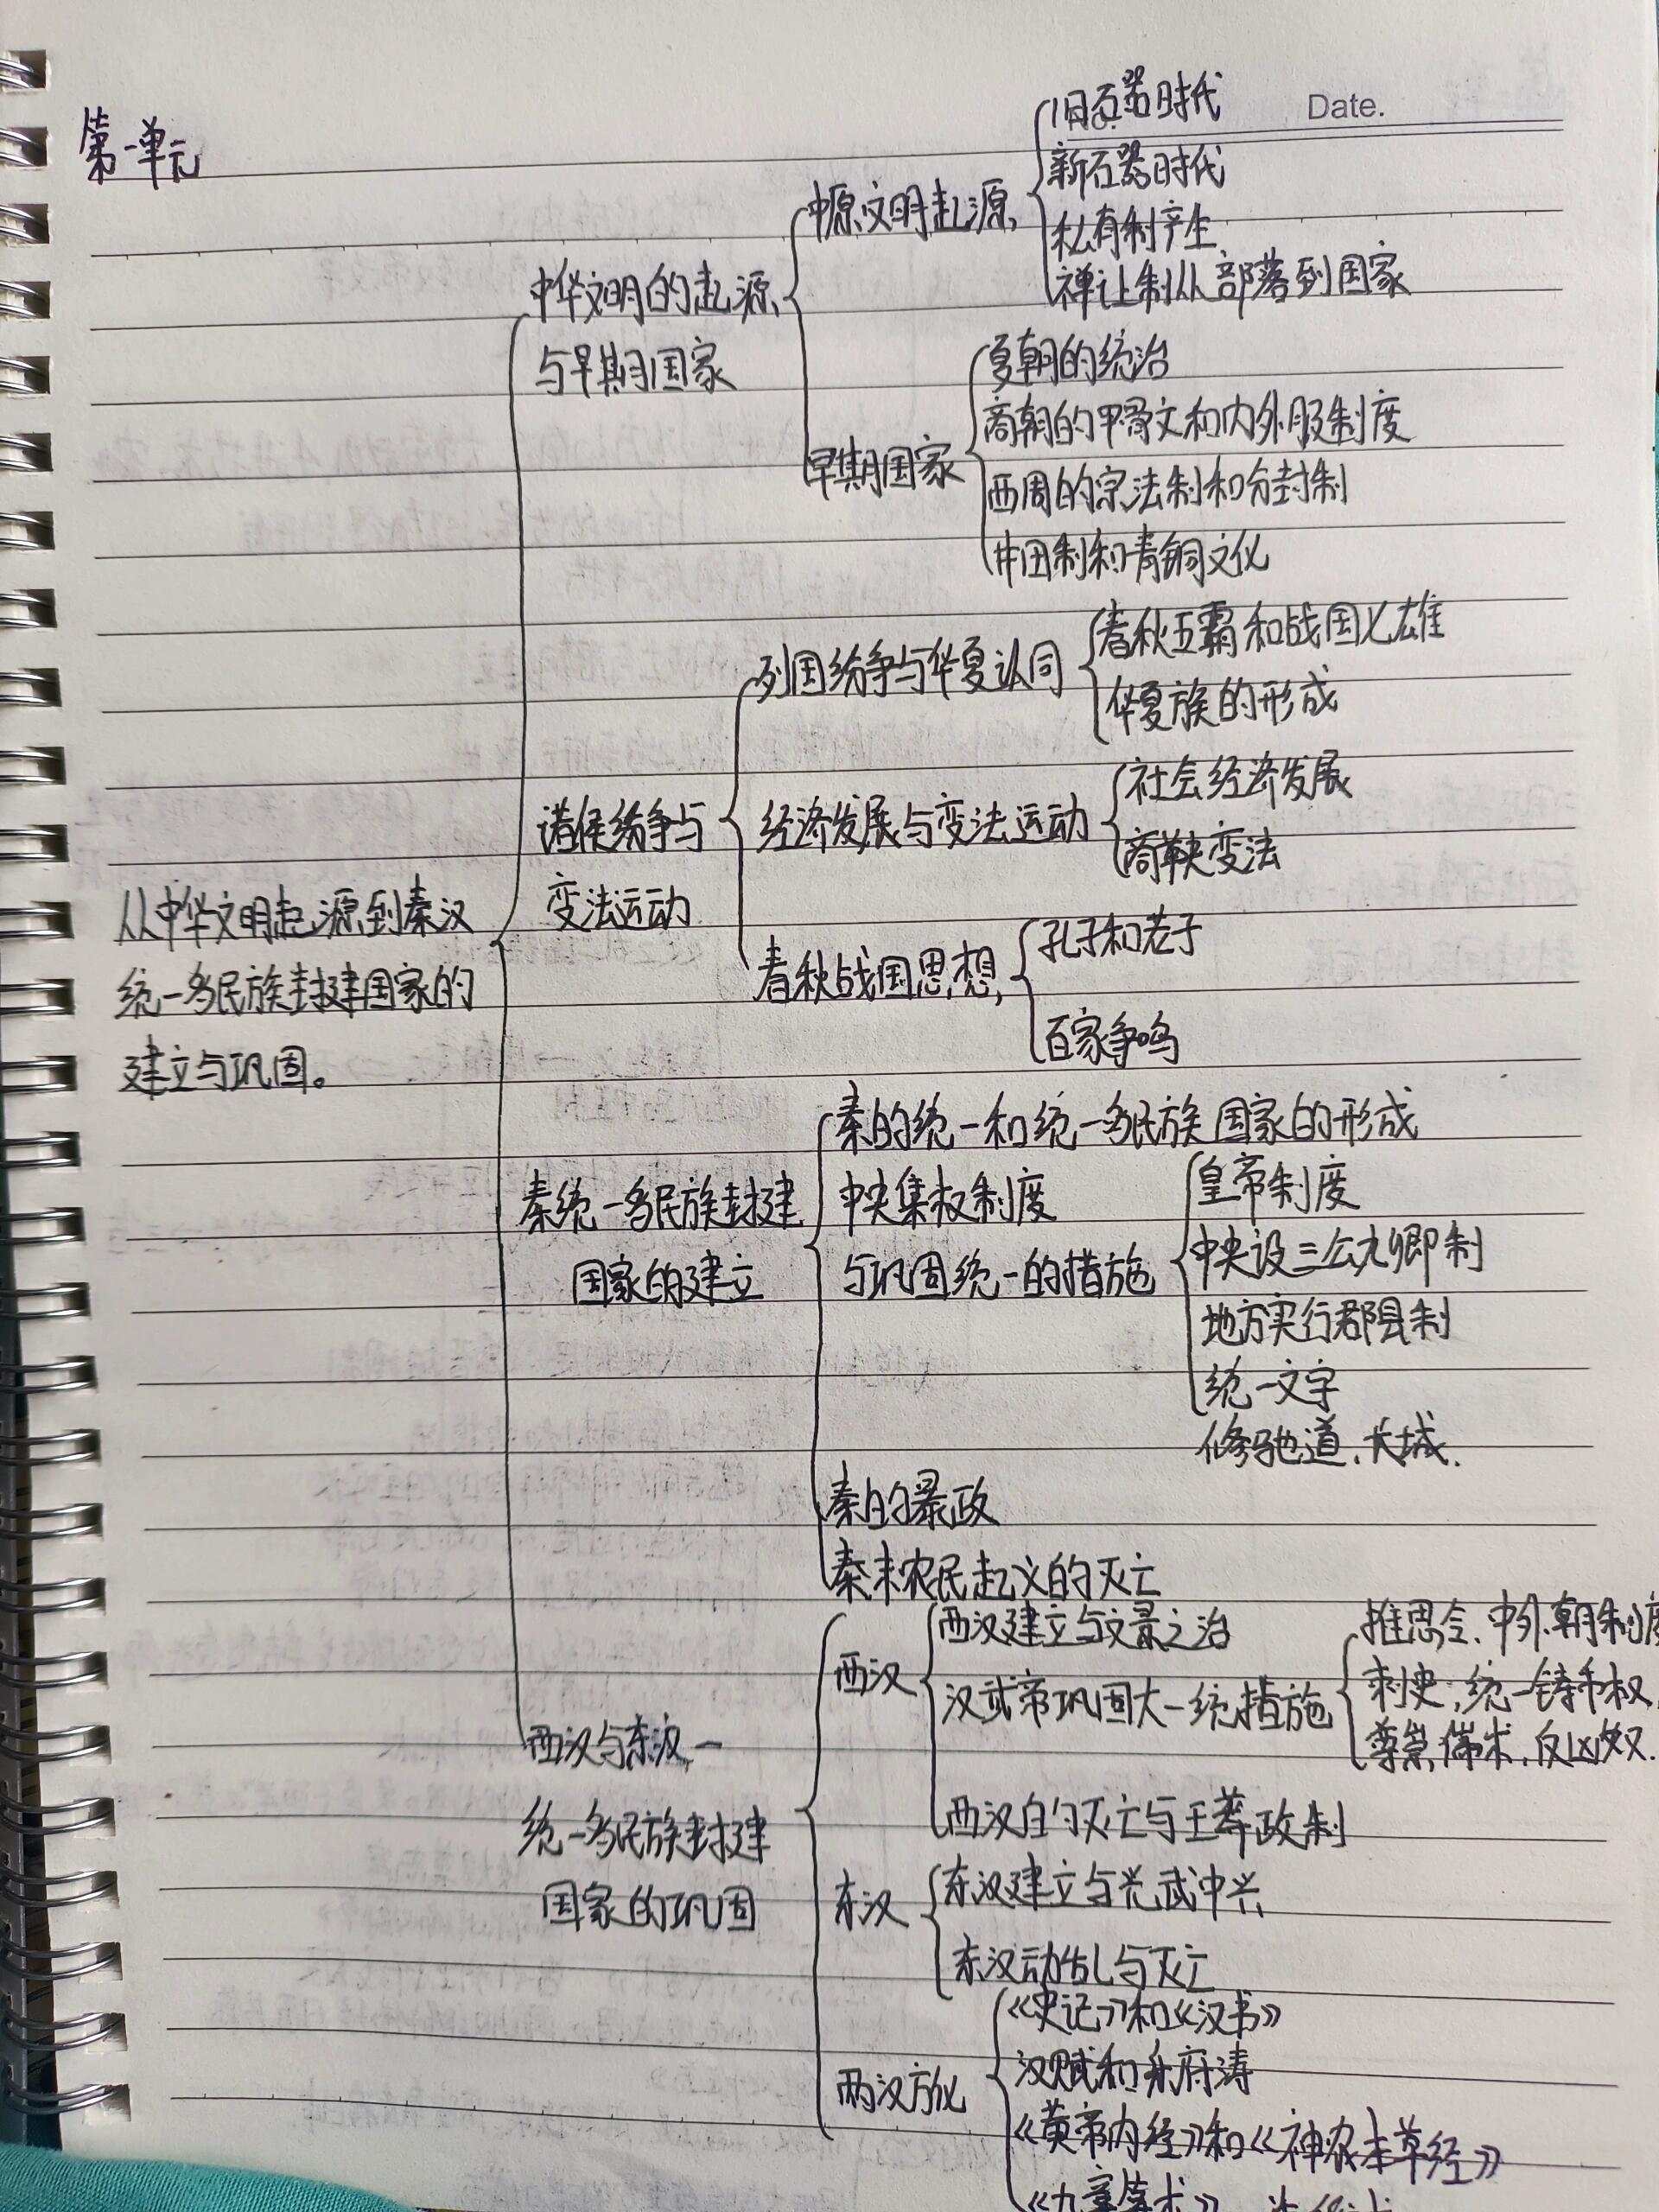 No.
Date.
第一单元
旧石器时代
新石器时代
中原文明起源
私有制产生
禅让制从部落到国家
中华文明的起源
与早期国家
夏朝的统治
商朝的甲骨文和内外服制度
早期国家
西周的宗法制和分封制
井田制和青铜文化
春秋五霸和战国七雄
列国纷争与华夏认同
华夏族的形成
社会经济发展
诸侯纷争与
经济发展与变法运动
商鞅变法
变法运动
从中华文明起源到秦汉
统一多民族封建国家的
建立与巩固。
孔子和老子
春秋战国思想
百家争鸣
秦的统一和统一多民族国家的形成
秦统一多民族封建
国家的建立
中央集权制度
与巩固统一的措施
皇帝制度
中央设三公九卿制
地方实行郡县制
统一文字
修驰道、长城.
秦的暴政
秦末农民起义的灭亡
西汉与东汉一
统一多民族封建
国家的巩固
西汉
西汉建立与文景之治
汉武帝巩固大一统措施
推恩令、中外朝制度
刺史,统一铸币权,
尊崇儒术,反凶奴.
西汉的灭亡与王莽政制
东汉
东汉建立与光武中兴
东汉动乱与灭亡
两汉文化
《史记》和《汉书》
汉赋和乐府诗
《黄帝内经》和《神农本草经》
《九章算术》